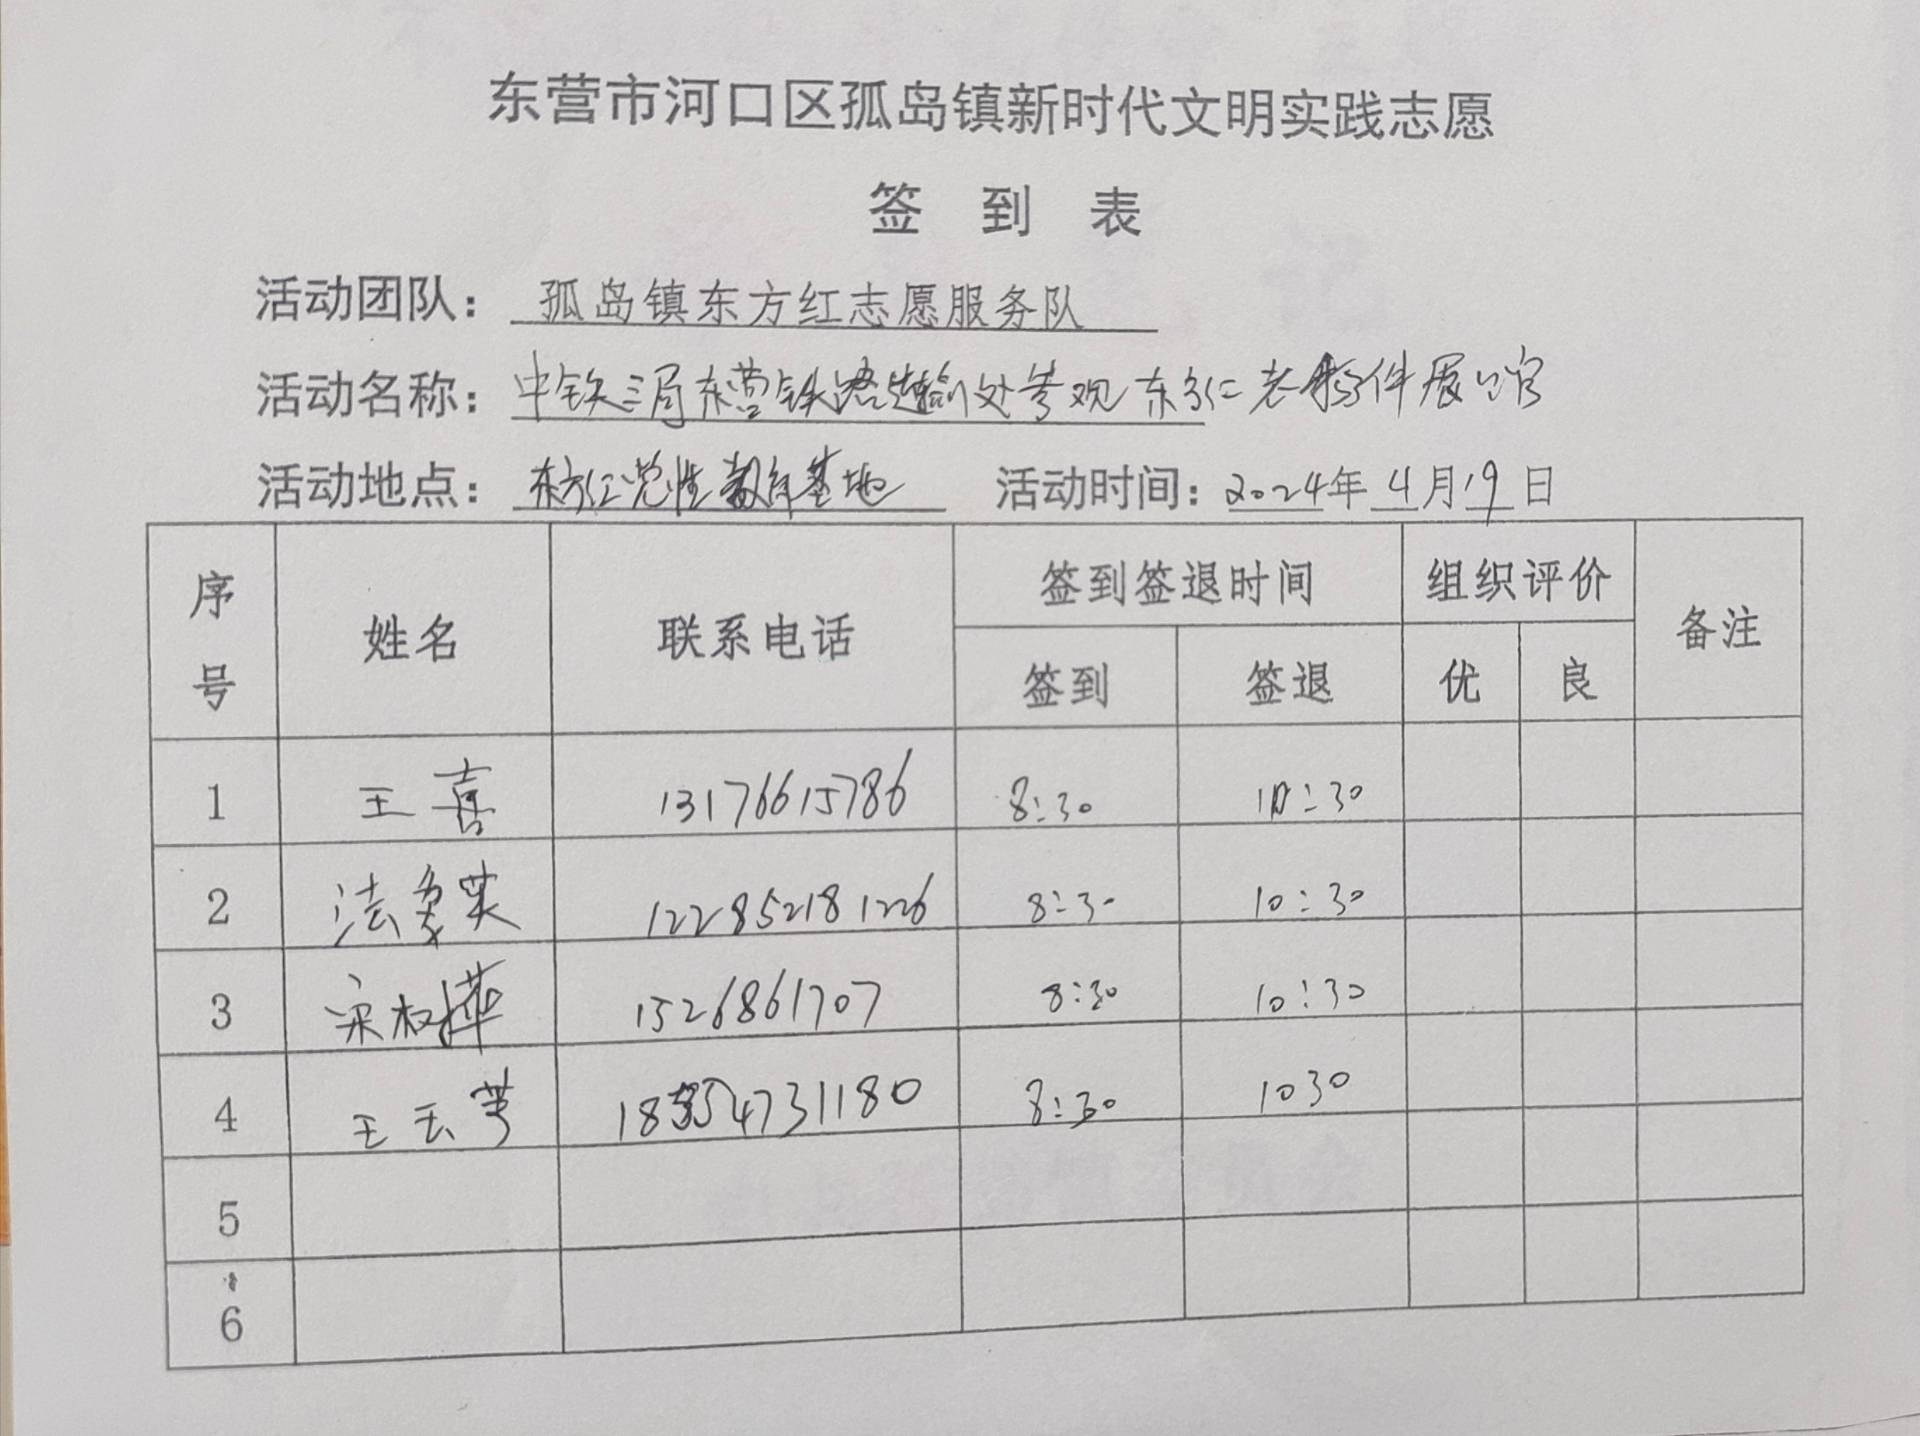 东营市河口区孤岛镇新时代文明实践志愿
签 到 表
活动团队： 孤岛镇东方红志愿服务队
活动名称： 中铁三局东营铁路运输处参观东方红老物件展馆
活动地点： 东方红党性教育基地 活动时间：2024年 4月19日
序号 姓名 联系电话 签到签退时间 组织评价 备注
签到 签退 优 良
1 王喜 13176615786 8:30 10:30
2 122852181226 8:30 10:30
3 宋 1526861707 8:30 10:30
4 王 4731180 8:30 1030
5
6